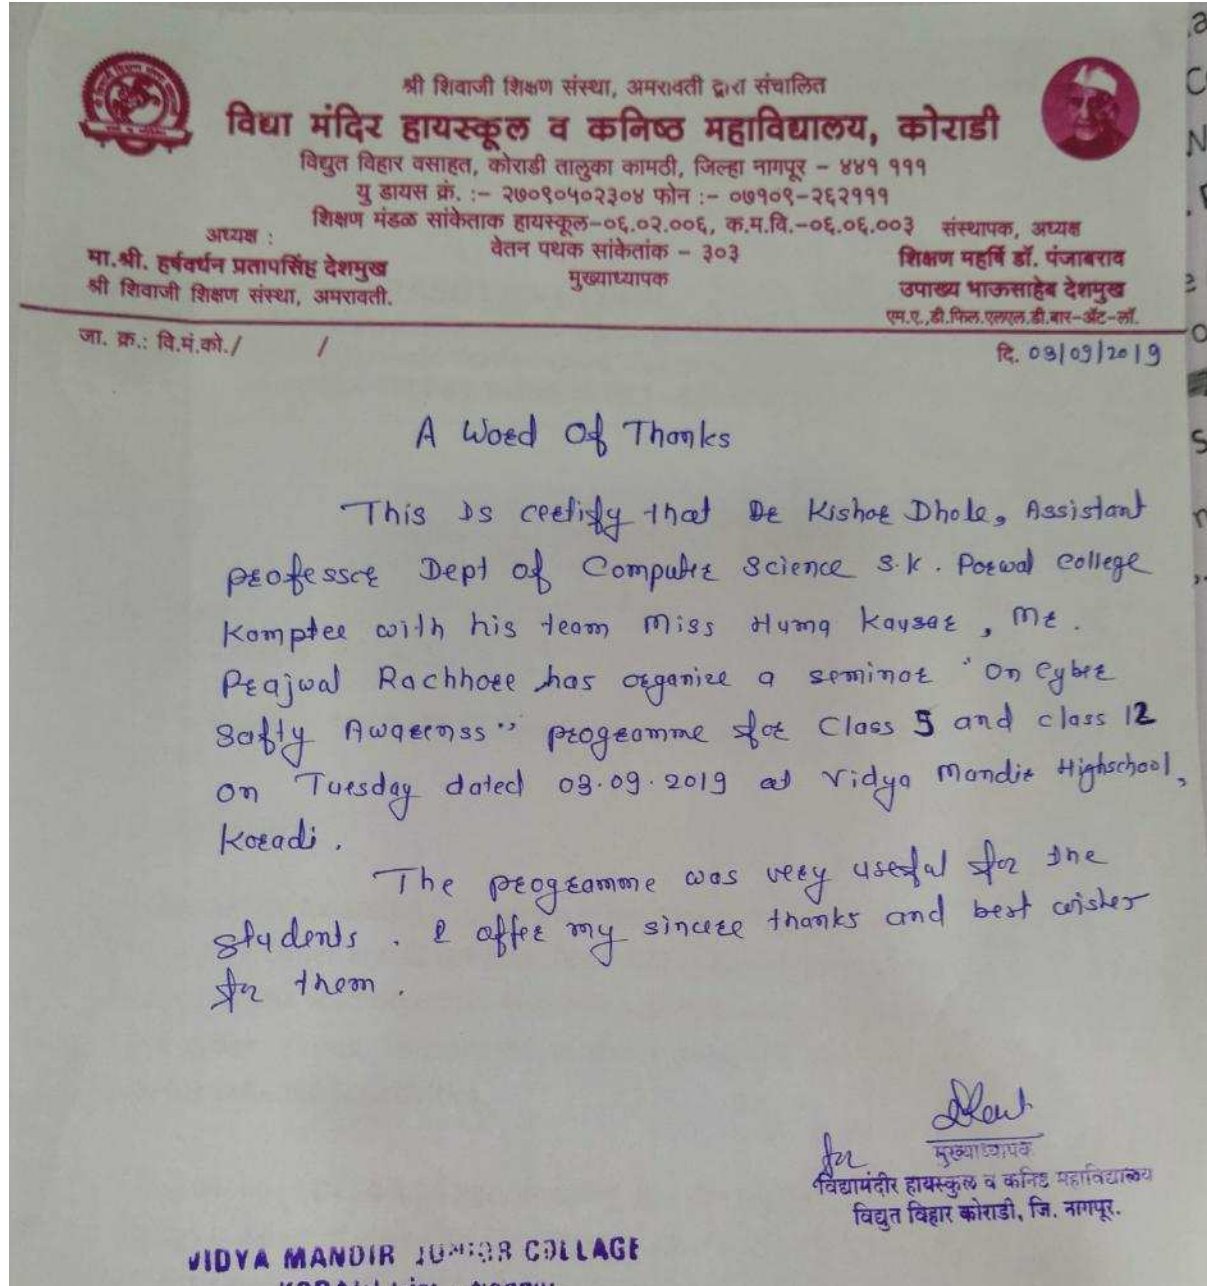 श्री शिवाजी शिक्षण संस्था, अमरावती द्वारा संचालित
विद्या मंदिर हायस्कूल व कनिष्ठ महाविद्यालय, कोराडी
विद्युत विहार वसाहत, कोराडी तालुका कामठी, जिल्हा नागपूर - ४४१ १११
यु डायस क्रं. :- २७०९०५०२३०४ फोन :- ०७१०९-२६२१११
शिक्षण मंडळ सांकेताक हायस्कूल-०६.०२.००६, क.म.वि.-०६.०६.००३
वेतन पथक सांकेतांक - ३०३
मुख्याध्यापक
अध्यक्ष :
मा.श्री. हर्षवर्धन प्रतापसिंह देशमुख
श्री शिवाजी शिक्षण संस्था, अमरावती.
संस्थापक, अध्यक्ष
शिक्षण महर्षि डॉ. पंजाबराव
उपाख्य भाऊसाहेब देशमुख
एम.ए.,डी.फिल.एलएल.डी.बार-ॲट-लॉ.
जा. क्र.: वि.मं.को./ /
दि. 03/09/2019
A Word Of Thanks
This Is certify that Dr Kishor Dhole, Assistant
professor Dept of Computer Science S.K. Porwal College
Kamptee with his team Miss Huma Kausar, Mr.
Prajwal Rachhore has organize a seminar "On Cyber
Safty Awarenss" programme for Class 5 and class 12
on Tuesday dated 03.09.2019 at Vidya Mandir Highschool,
Koradi.
The programme was very useful for the
students. I offer my sincere thanks and best wishes
for them.
for
मुख्याध्यापक
विद्यामंदीर हायस्कुल व कनिष्ठ महाविद्यालय
विद्युत विहार कोराडी, जि. नागपूर.
VIDYA MANDIR JUNIOR COLLAGE